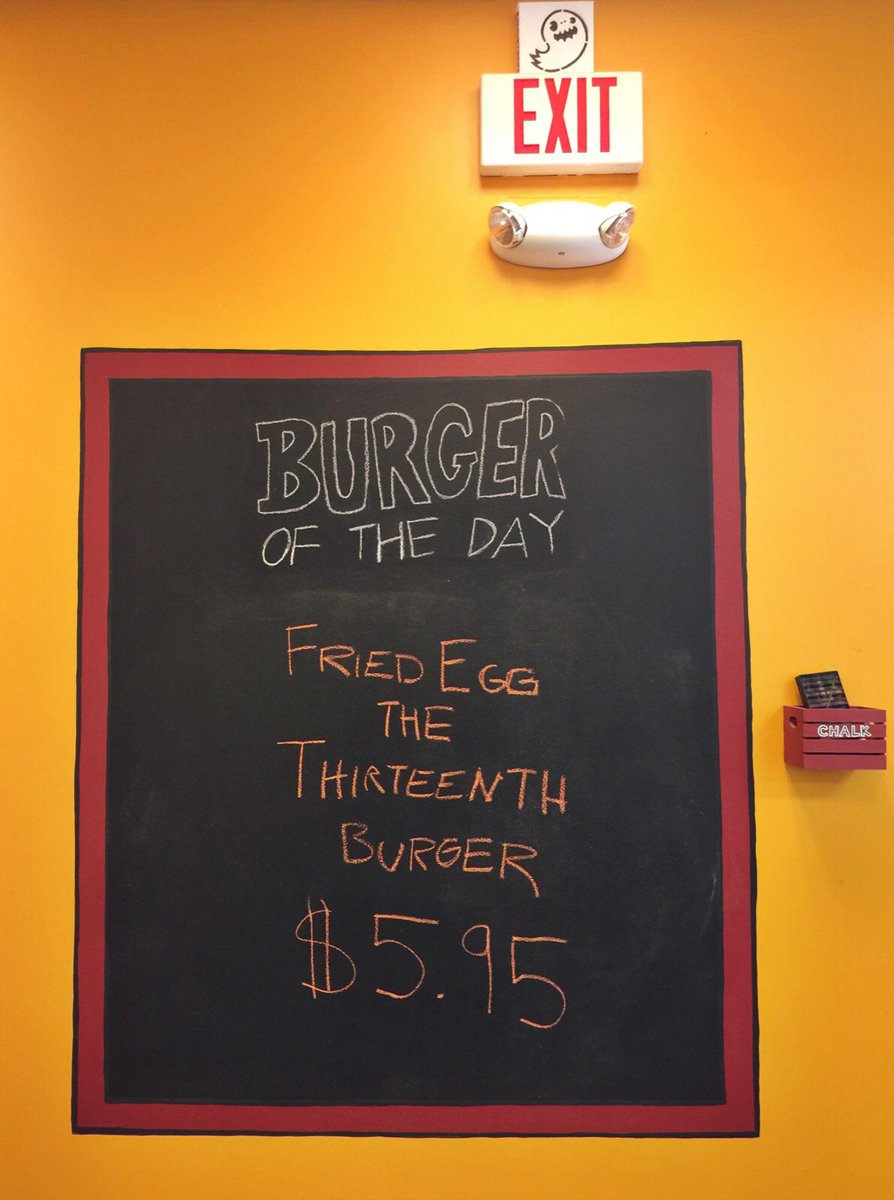 EXIT
BURGER
OF THE DAY
FRIED EGG
THE
THIRTEENTH
BURGER
$5.95
CHALK